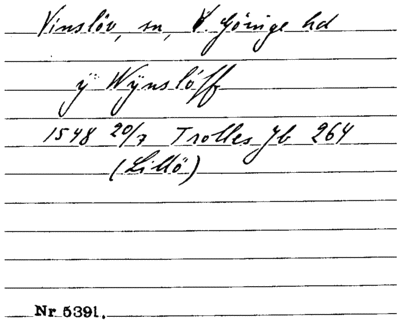 Vinslöv, sn, V. Göinge hd
ÿ Wÿnslöff
1548 20/7 Trolles Jb 264
(Lillö)
Nr 5391.